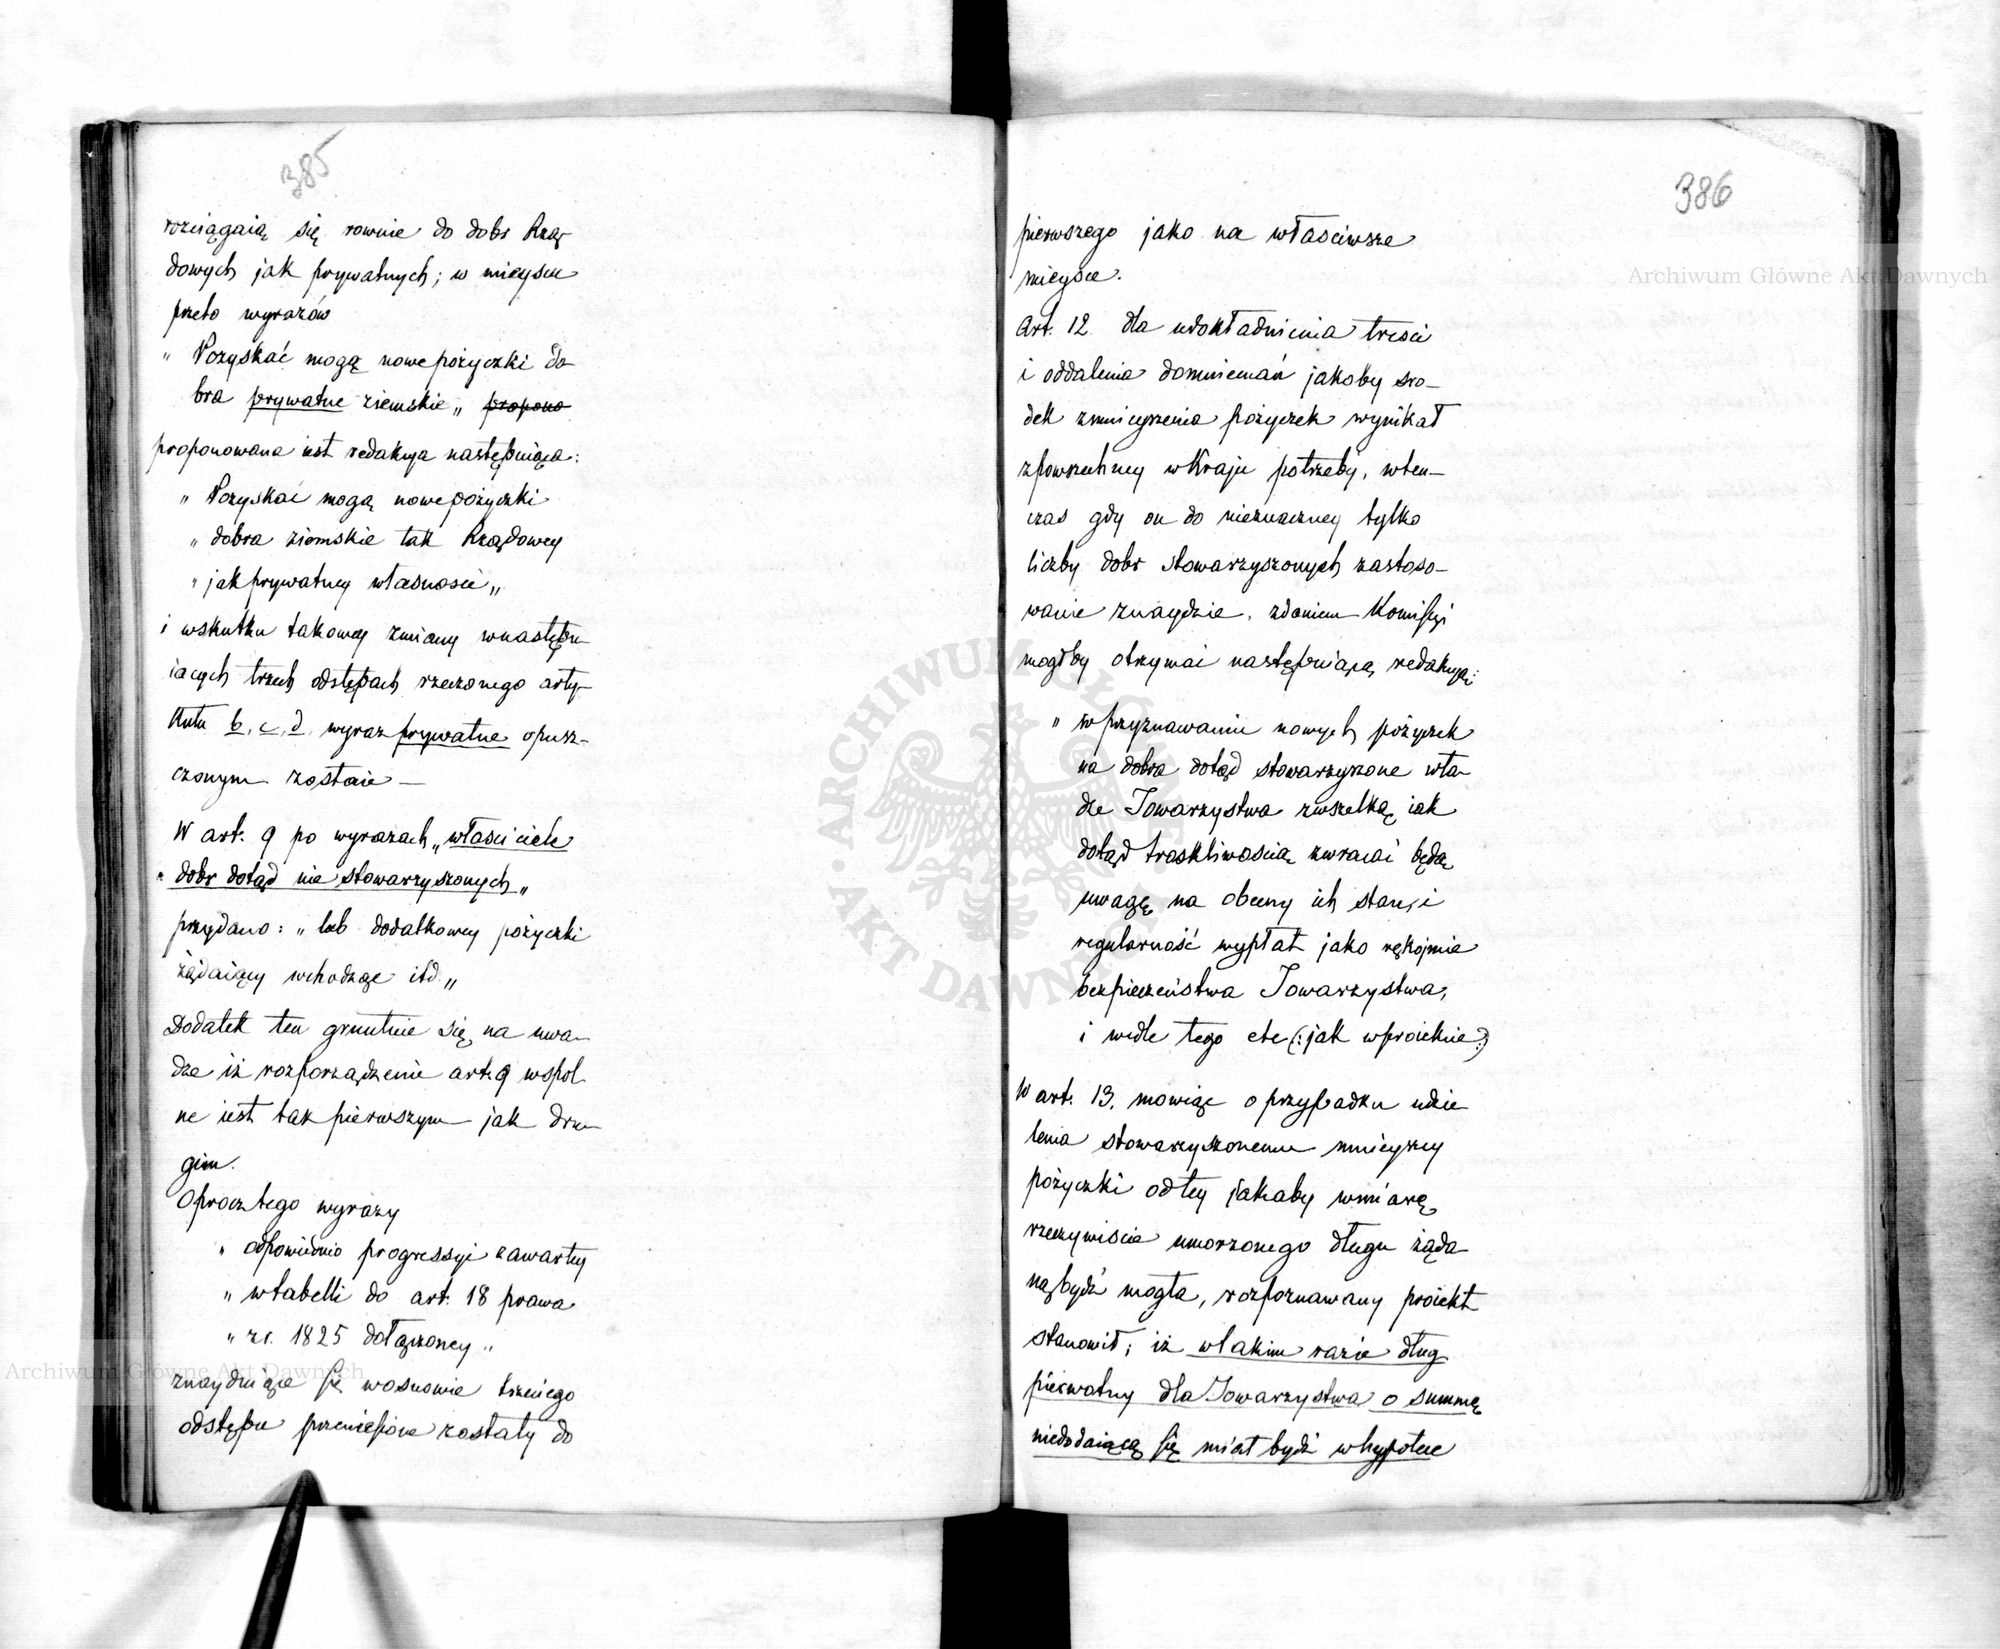 385
rozciągaią się rownie do dobr Rzą-
dowych jak prywatnych; w mieyscu
przeto wyrazów
„ Pozyskać mogą nowe pożyczki do-
bra prywatne ziemskie „ propono
proponowana iest redakcya następuiąca:
„ Pozyskać mogą nowe pożyczki
„ dobra ziemskie tak Rządowey
„ jak prywatney własności „
i wskutku takowey zmiany wnastępu
iacych trzech odstępach rzeczonego arty-
kułu b, c, d, wyraz prywatne opusz-
czonym zostaie —
W art. 9 po wyrazach „ właściciele
„ dobr dotąd nie stowarzyszonych „
przydano: „ lub dodatkowey pożyczki
żądaiący wchodząc itd. „
Dodatek ten gruntuie się na uwa-
dze iż rozporządzenie art. 9 wspól-
ne iest tak pierwszym jak dru-
gim.
Oprocz tego wyrazy
„ odpowiednio progressyi zawartey
„ w tabelli do art. 18 prawa
„ z r. 1825 dołączoney „
znayduiące się wosnowie trzeciego
odstępu przeniesione zostały do
386
pierwszego jako na właściwsze
mieysce.
Art. 12 dla udokładnienia treści
i oddalenia domniemań jakoby sro-
dek zmnieyszenia pożyczek wynikał
z powszechney w Kraju potrzeby, wten-
czas gdy on do nieznaczney tylko
liczby dobr stowarzyszonych zastoso-
wanie znaydzie, zdaniem Komissyi
mogłby otrzymać następuiącą redakcyą:
„ w przyznawaniu nowych pożyczek
na dobra dotąd stowarzyszone wła-
dze Towarzystwa zwszelką iak
dotąd troskliwością zwracać będą
uwagę na obecny ich stan, i
regularność wypłat jako rękojmie
bezpieczeństwa Towarzystwa,
i wedle tego etc (: jak wproiekcie :)
W art. 13. mowiąc o przypadku udzie
lenia stowarzyszonemu mnieyszey
pożyczki od tey jakaby wmiarę
rzeczywiscie umorzonego długu żąda
ną bydź mogła, rozpoznawany proiekt
stanowił; iż wtakim razie dług
pierwotny dla Towarzystwa o summę
niedodaiącą się miał bydź whypotece
Archiwum Główne Akt Dawnych
Archiwum Główne Akt Dawnych
ARCHIWUM GŁÓWNE AKT DAWNYCH